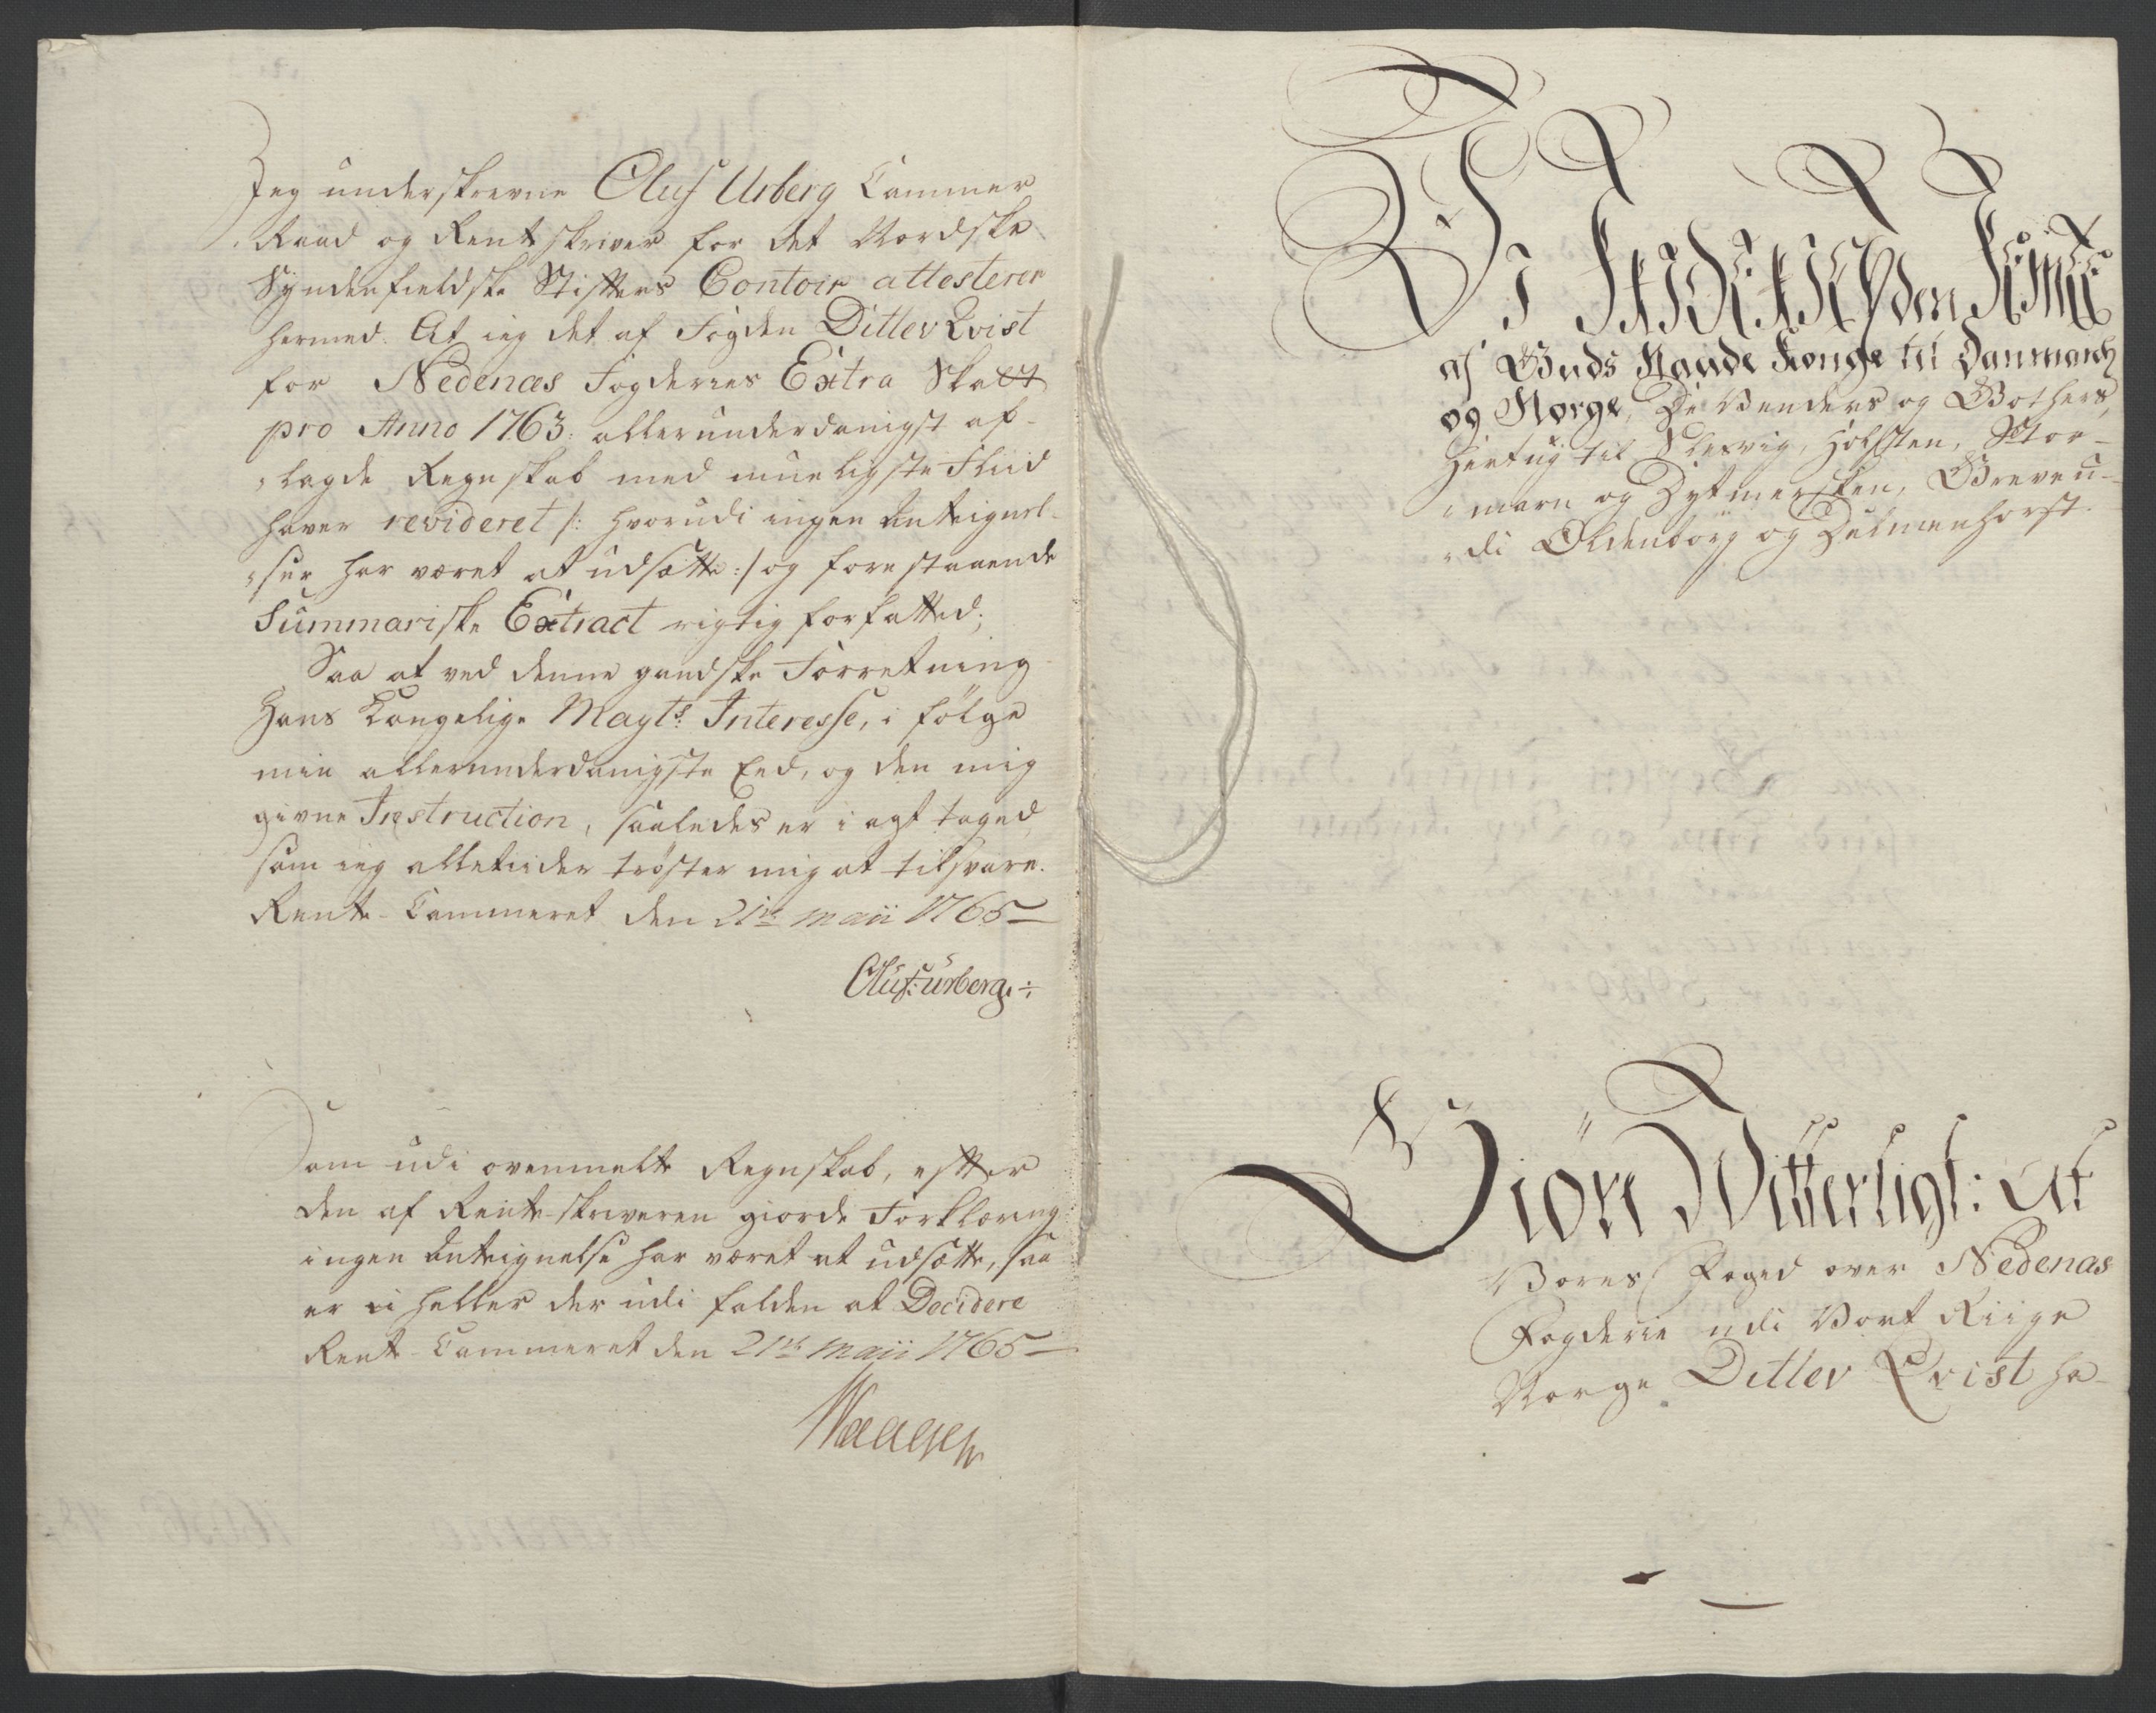 Jeg underskrevne Oluf Urberg Cammer
Raad og Rentskriver for det Nordske
Syndenfieldske Stifters Contoir attesterer
hermed: At ieg det af Fogden Ditlev Qvist
for Nedenæs Fogderies Extra Skatt
pro Anno 1763: allerunderdanigst af-
lagde Regnskab med mueligste Fliid
haver revideret /: hvorudi ingen Antegnel-
ser har været at udsætte :/ og forestaaende
Summariske Extract rigtig forfatted;
Saa at ved denne gandske Forretning
Hans Kongelige Mayts: Interesse, i følge
min allerunderdanigste Eed, og den mig
givne Instruction, saaledes er i agt taged,
som ieg alletiider trøster mig at tilsvare.
Rente-Cammeret den 21de maii 1765
Oluf: Urberg.
Som udi ovenmelte Regnskab, efter
den af Rente-skriveren giorde Forklaring
ingen Antegnelse har været at udsætte, saa
er ei heller der udi falden at Decidere
Rente-Cammeret den 21de maii 1765
Vi Friderich den Femte
af Guds Naade Konge til Danmarch
og Norge, De Venders og Gothers,
Hertug til Slesvig, Holsten, Stor-
marn og Dytmersken, Greve u-
di Oldenborg og Delmenhorst.
Giøre Witterligt: At
Vores Foged over Nedenæs
Fogderie udi Vort Riige
Norge Ditlev Qvist ha-